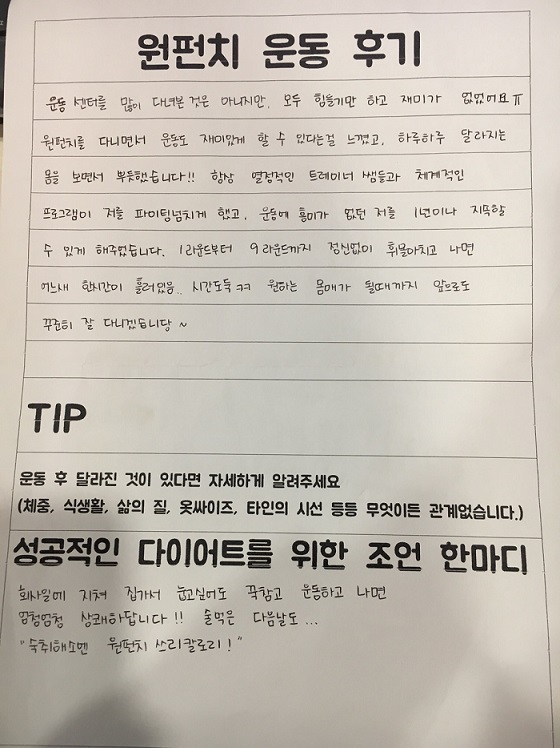 원펀치 운동 후기
운동 센터를 많이 다녀본 것은 아니지만, 모두 힘들기만 하고 재미가 없었어요ㅠ
원펀치를 다니면서 운동도 재미있게 할 수 있다는걸 느꼈고, 하루하루 달라지는
몸을 보면서 뿌듯했습니다!! 항상 열정적인 트레이너 쌤들과 체계적인
프로그램이 저를 파이팅넘치게 했고, 운동에 흥미가 없던 저를 1년이나 지속할
수 있게 해주었습니다. 1라운드부터 9라운드까지 정신없이 휘몰아치고 나면
어느새 한시간이 흘러있음.. 시간도둑ㅋㅋ 원하는 몸매가 될때까지 앞으로도
꾸준히 잘 다니겠습니당 ~
TIP
운동 후 달라진 것이 있다면 자세하게 알려주세요
(체중, 식생활, 삶의 질, 옷싸이즈, 타인의 시선 등등 무엇이든 관계없습니다.)
성공적인 다이어트를 위한 조언 한마디
회사일에 지쳐 집가서 눕고싶어도 꾹참고 운동하고 나면
엄청엄청 상쾌하답니다!! 술먹은 다음날도...
"숙취해소엔 원펀치 쓰리칼로리!"